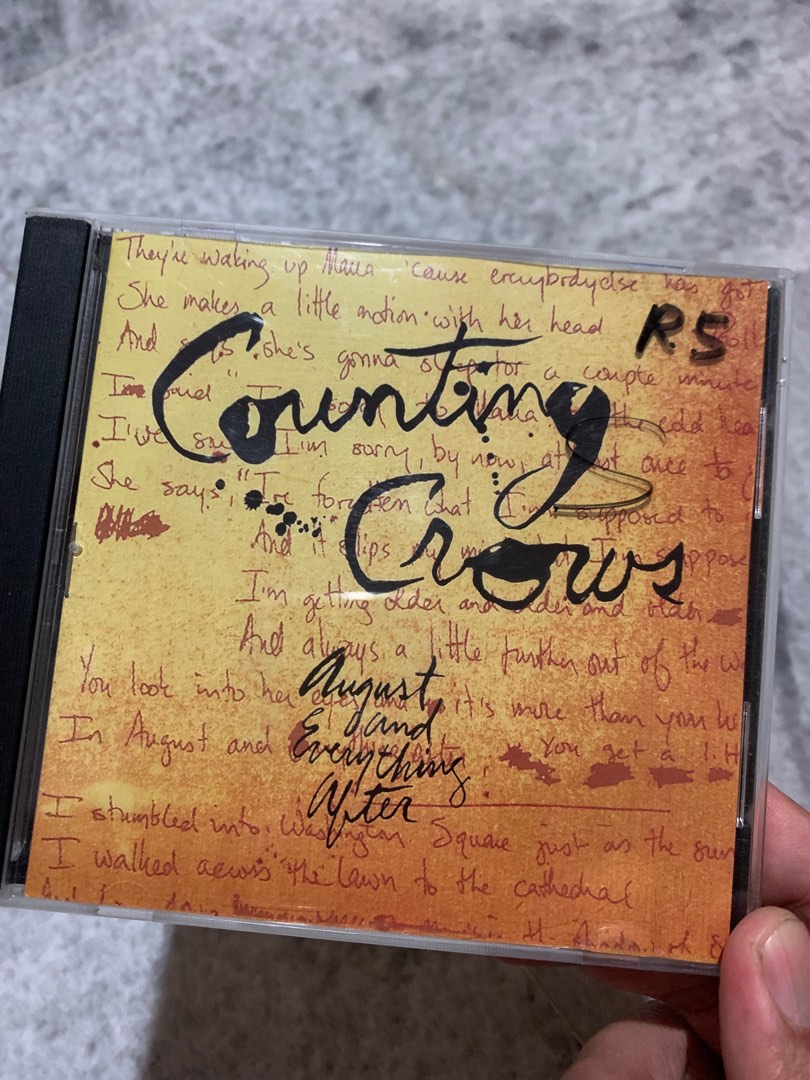 They're waking up Maria 'cause everybodyelse has got
She makes a little motion with her head
R.5
And says she's gonna sleep for a couple minute
Counting
I said "I'm to Maria the cold hea
I've I'm sorry, by now, at once to
She says, "I've forgotten what I'm supposed to
Crows
And it slips my mind I'm suppose
I'm getting older and older and older
And always a little further out of the w
August
and
Everything
After
You look into her eyes and it's more than your he
In August and after, You get a litt
I stumbled into Washington Square just as the sun
I walked across the lawn to the cathedral